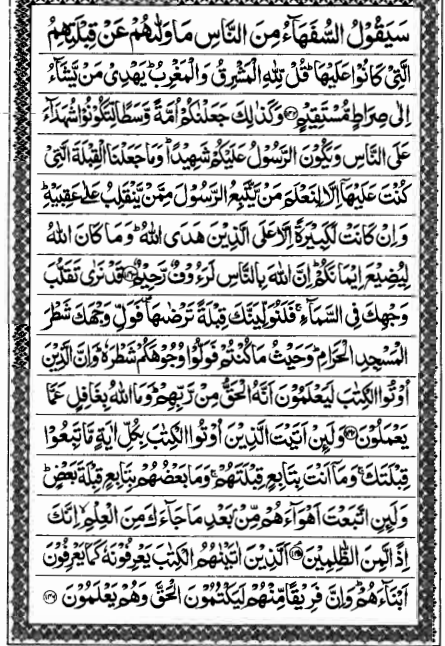 سَيَقُوْلُ السُّفَهَآءُ مِنَ النَّاسِ مَا وَلّٰىهُمْ عَنْ قِبْلَتِهِمُ
الَّتِىْ كَانُوْا عَلَيْهَا ؕ قُلْ لِّلّٰهِ الْمَشْرِقُ وَالْمَغْرِبُ ؕ يَهْدِىْ مَنْ يَّشَآءُ
اِلٰى صِرَاطٍ مُّسْتَقِيْمٍ ﴿۱۴۲﴾ وَكَذٰلِكَ جَعَلْنٰكُمْ اُمَّةً وَّسَطًا لِّتَكُوْنُوْا شُهَدَآءَ
عَلَى النَّاسِ وَيَكُوْنَ الرَّسُوْلُ عَلَيْكُمْ شَهِيْدًا ؕ وَمَا جَعَلْنَا الْقِبْلَةَ الَّتِىْ
كُنْتَ عَلَيْهَآ اِلَّا لِنَعْلَمَ مَنْ يَّتَّبِعُ الرَّسُوْلَ مِمَّنْ يَّنْقَلِبُ عَلٰى عَقِبَيْهِ ؕ
وَاِنْ كَانَتْ لَكَبِيْرَةً اِلَّا عَلَى الَّذِيْنَ هَدَى اللّٰهُ ؕ وَمَا كَانَ اللّٰهُ
لِيُضِيْعَ اِيْمَانَكُمْ ؕ اِنَّ اللّٰهَ بِالنَّاسِ لَرَءُوْفٌ رَّحِيْمٌ ﴿۱۴۳﴾ قَدْ نَرٰى تَقَلُّبَ
وَجْهِكَ فِى السَّمَآءِ ۚ فَلَنُوَلِّيَنَّكَ قِبْلَةً تَرْضٰىهَا ۪ فَوَلِّ وَجْهَكَ شَطْرَ
الْمَسْجِدِ الْحَرَامِ ؕ وَحَيْثُ مَا كُنْتُمْ فَوَلُّوْا وُجُوْهَكُمْ شَطْرَهٗ ؕ وَاِنَّ الَّذِيْنَ
اُوْتُوا الْكِتٰبَ لَيَعْلَمُوْنَ اَنَّهُ الْحَقُّ مِنْ رَّبِّهِمْ ؕ وَمَا اللّٰهُ بِغَافِلٍ عَمَّا
يَعْمَلُوْنَ ﴿۱۴۴﴾ وَلَئِنْ اَتَيْتَ الَّذِيْنَ اُوْتُوا الْكِتٰبَ بِكُلِّ اٰيَةٍ مَّا تَبِعُوْا
قِبْلَتَكَ ۚ وَمَآ اَنْتَ بِتَابِعٍ قِبْلَتَهُمْ ۚ وَمَا بَعْضُهُمْ بِتَابِعٍ قِبْلَةَ بَعْضٍ ؕ
وَلَئِنِ اتَّبَعْتَ اَهْوَآءَهُمْ مِّنْۢ بَعْدِ مَا جَآءَكَ مِنَ الْعِلْمِ ۙ اِنَّكَ
اِذًا لَّمِنَ الظّٰلِمِيْنَ ﴿۱۴۵﴾ اَلَّذِيْنَ اٰتَيْنٰهُمُ الْكِتٰبَ يَعْرِفُوْنَهٗ كَمَا يَعْرِفُوْنَ
اَبْنَآءَهُمْ ؕ وَاِنَّ فَرِيْقًا مِّنْهُمْ لَيَكْتُمُوْنَ الْحَقَّ وَهُمْ يَعْلَمُوْنَ ﴿۱۴۶﴾